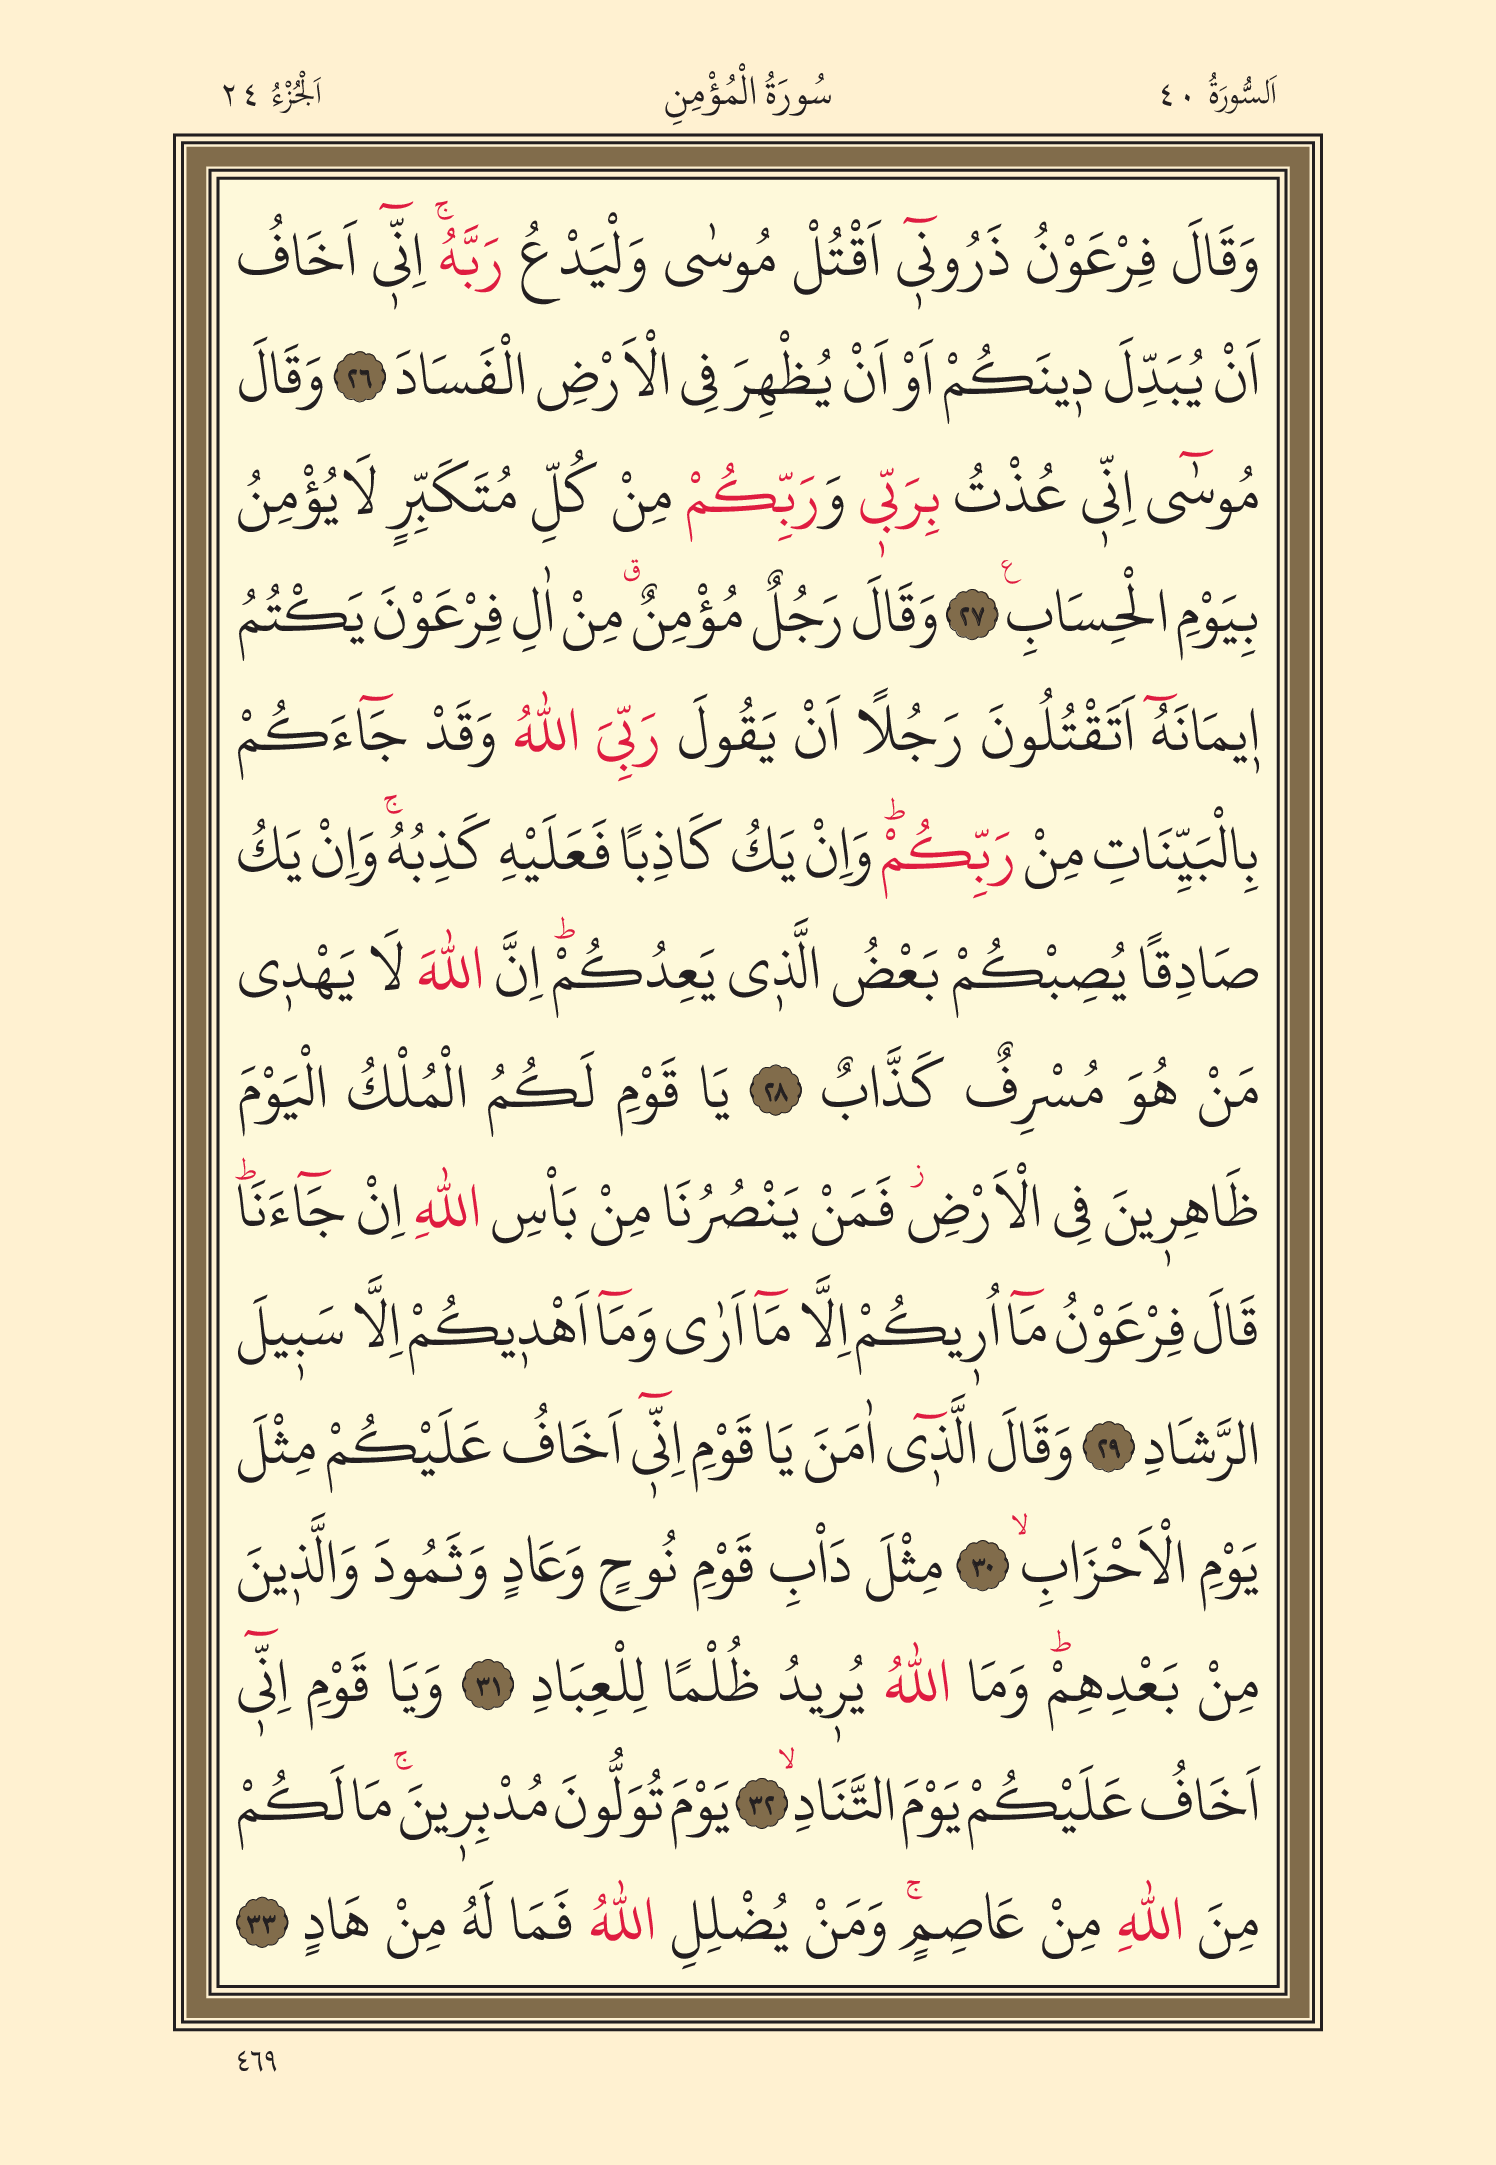 اَلسُّورَةُ ٤٠ سُورَةُ الْمُؤْمِنِ اَلْجُزْءُ ٢٤
وَقَالَ فِرْعَوْنُ ذَرُونٖٓي اَقْتُلْ مُوسٰى وَلْيَدْعُ رَبَّهُۚ اِنّٖٓي اَخَافُ
اَنْ يُبَدِّلَ دٖينَكُمْ اَوْ اَنْ يُظْهِرَ فِي الْاَرْضِ الْفَسَادَ ٢٦ وَقَالَ
مُوسٰٓى اِنّٖي عُذْتُ بِرَبّٖي وَرَبِّكُمْ مِنْ كُلِّ مُتَكَبِّرٍ لَا يُؤْمِنُ
بِيَوْمِ الْحِسَابِ ع ٢٧ وَقَالَ رَجُلٌ مُؤْمِنٌ ق مِنْ اٰلِ فِرْعَوْنَ يَكْتُمُ
اٖيمَانَهُٓ اَتَقْتُلُونَ رَجُلًا اَنْ يَقُولَ رَبِّيَ اللّٰهُ وَقَدْ جَٓاءَكُمْ
بِالْبَيِّنَاتِ مِنْ رَبِّكُمْؕ وَاِنْ يَكُ كَاذِبًا فَعَلَيْهِ كَذِبُهُۚ وَاِنْ يَكُ
صَادِقًا يُصِبْكُمْ بَعْضُ الَّذٖي يَعِدُكُمْؕ اِنَّ اللّٰهَ لَا يَهْدٖي
مَنْ هُوَ مُسْرِفٌ كَذَّابٌ ٢٨ يَا قَوْمِ لَكُمُ الْمُلْكُ الْيَوْمَ
ظَاهِرٖينَ فِي الْاَرْضِ ز فَمَنْ يَنْصُرُنَا مِنْ بَاْسِ اللّٰهِ اِنْ جَٓاءَنَاؕ
قَالَ فِرْعَوْنُ مَٓا اُرٖيكُمْ اِلَّا مَٓا اَرٰى وَمَٓا اَهْدٖيكُمْ اِلَّا سَبٖيلَ
الرَّشَادِ ٢٩ وَقَالَ الَّذٖٓي اٰمَنَ يَا قَوْمِ اِنّٖٓي اَخَافُ عَلَيْكُمْ مِثْلَ
يَوْمِ الْاَحْزَابِۙ ٣٠ مِثْلَ دَاْبِ قَوْمِ نُوحٍ وَعَادٍ وَثَمُودَ وَالَّذٖينَ
مِنْ بَعْدِهِمْؕ وَمَا اللّٰهُ يُرٖيدُ ظُلْمًا لِلْعِبَادِ ٣١ وَيَا قَوْمِ اِنّٖٓي
اَخَافُ عَلَيْكُمْ يَوْمَ التَّنَادِۙ ٣٢ يَوْمَ تُوَلُّونَ مُدْبِرٖينَۚ مَا لَكُمْ
مِنَ اللّٰهِ مِنْ عَاصِمٍۚ وَمَنْ يُضْلِلِ اللّٰهُ فَمَا لَهُ مِنْ هَادٍ ٣٣
٤٦٩